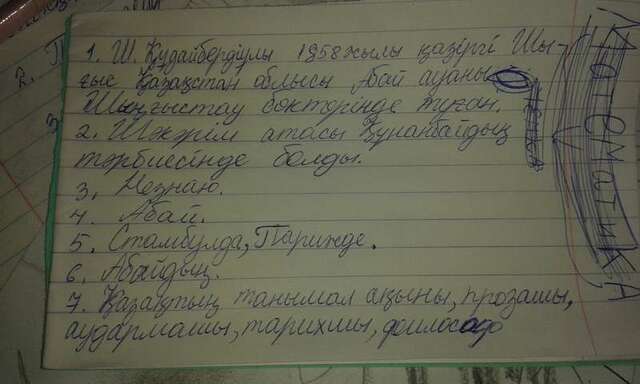 1. Ш. Құдайбердіұлы 1958 жылы қазіргі Шы-
ғыс Қазақстан облысы Абай ауаны
Шыңғыстау сектөрінде туған.
2. Шәкәрім атасы Құнанбайдың
тәрбиесінде болды.
3. Незнаю.
4. Абай.
5. Стамбулда, Парижде.
6. Абайдың.
7. Қазақтың танымал ақыны, прозашы,
аудармашы, тарихшы, философ
Математика